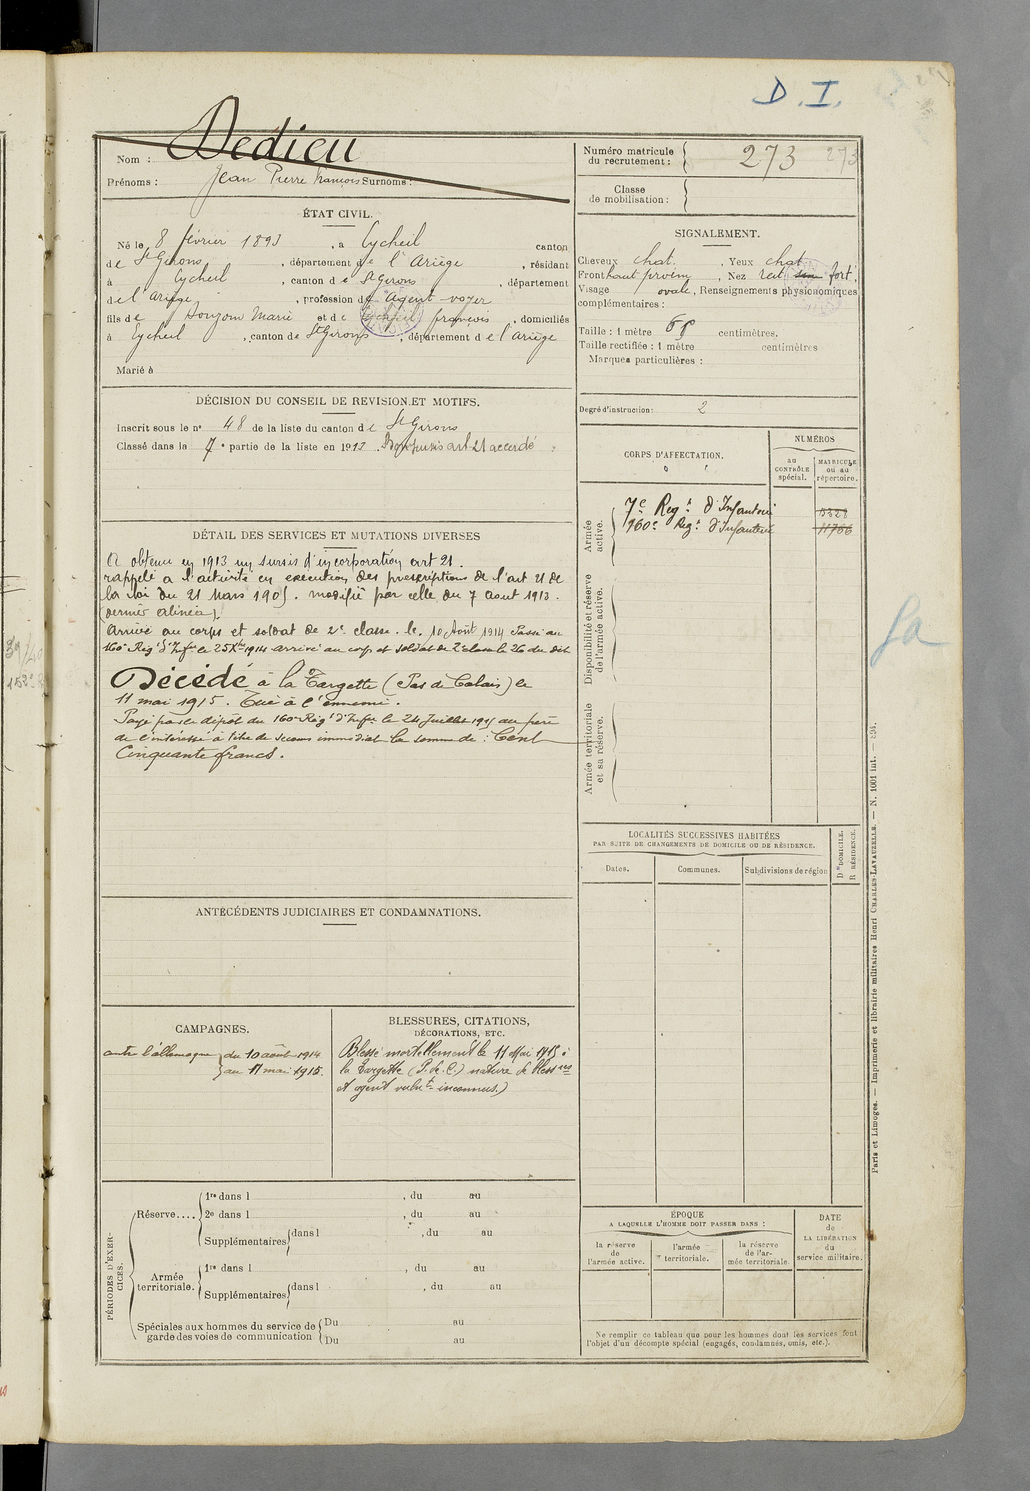 D. I.
Nom : Dedieu
Prénoms : Jean Pierre françois Surnoms :
Numéro matricule
du recrutement : 273 273
Classe
de mobilisation :
ÉTAT CIVIL.
Né le 8 février 1893, à Eycheil canton
de St Girons, département de l'Ariège, résidant
à Eycheil, canton de St Girons, département
de l'Ariège, profession d'agent-voyer
fils de et de françois, domiciliés
à Eycheil, canton de St Girons, département de l'Ariège
Marié à
SIGNALEMENT.
Cheveux chat. Yeux chat
Front haut Nez rect. fort.
Visage ovale, Renseignements physionomiques
complémentaires :
Taille : 1 mètre centimètres.
Taille rectifiée : 1 mètre centimètres
Marques particulières :
Degré d'instruction : 2
DÉCISION DU CONSEIL DE REVISION ET MOTIFS.
Inscrit sous le n° 48 de la liste du canton de St Girons
Classé dans la 7e partie de la liste en 1913. art 21 accordé
CORPS D'AFFECTATION.
NUMÉROS
au
CONTRÔLE
spécial.
MATRICULE
ou au
répertoire.
Armée
active.
7e Regt d'Infanterie 5328
160e Regt d'Infanterie 11766
Disponibilité et réserve
de l'armée active.
Armée territoriale
et sa réserve.
DÉTAIL DES SERVICES ET MUTATIONS DIVERSES
A obtenu en 1913 un sursis d'incorporation art 21.
rappelé à l'activité en exécution des prescriptions de l'art 21 de
la loi du 21 Mars 1905. modifié par celle du 7 aout 1913.
(dernier alinéa).
Arrivé au corps et soldat de 2e classe. le 10 Août 1914 Passé au
160e Regt d'Infie le 25 Xbre 1914 arrivé au corps et soldat de 2e classe le 26 du dit
Décédé à la Targette (Pas de Calais) le
11 mai 1915. Tué à l'ennemi.
Payé par le dépôt du 160e Regt d'Infie le 24 Juillet 1915 au père
de l'intéressé à titre de secours immédiat la somme de : Cent
Cinquante francs.
LOCALITÉS SUCCESSIVES HABITÉES
PAR SUITE DE CHANGEMENTS DE DOMICILE OU DE RÉSIDENCE.
Dates.
Communes.
Subdivisions de région
D DOMICILE.
R RÉSIDENCE.
ANTÉCÉDENTS JUDICIAIRES ET CONDAMNATIONS.
CAMPAGNES.
contre l'allemagne du 10 août 1914
au 11 mai 1915.
BLESSURES, CITATIONS,
DÉCORATIONS, ETC.
Blessé mortellement le 11 Mai 1915 à
la Targette (P. de C.) nature de blessres
et agent vulnt inconnus.)
PÉRIODES D'EXERCICES.
Réserve....
1re dans l , du au
2e dans l , du au
Supplémentaires dans l , du au
Armée
territoriale.
1re dans l , du au
Supplémentaires dans l , du au
Spéciales aux hommes du service de
garde des voies de communication
Du au
Du au
ÉPOQUE
A LAQUELLE L'HOMME DOIT PASSER DANS :
la réserve
de
l'armée active.
l'armée
territoriale.
la réserve
de l'ar-
mée territoriale.
DATE
de
LA LIBÉRATION
du
service militaire.
Ne remplir ce tableau que pour les hommes dont les services font
l'objet d'un décompte spécial (engagés, condamnés, omis, etc.).
Paris et Limoges. — Imprimerie et librairie militaires Henri CHARLES-LAVAUZELLE. — N. 1001 int.